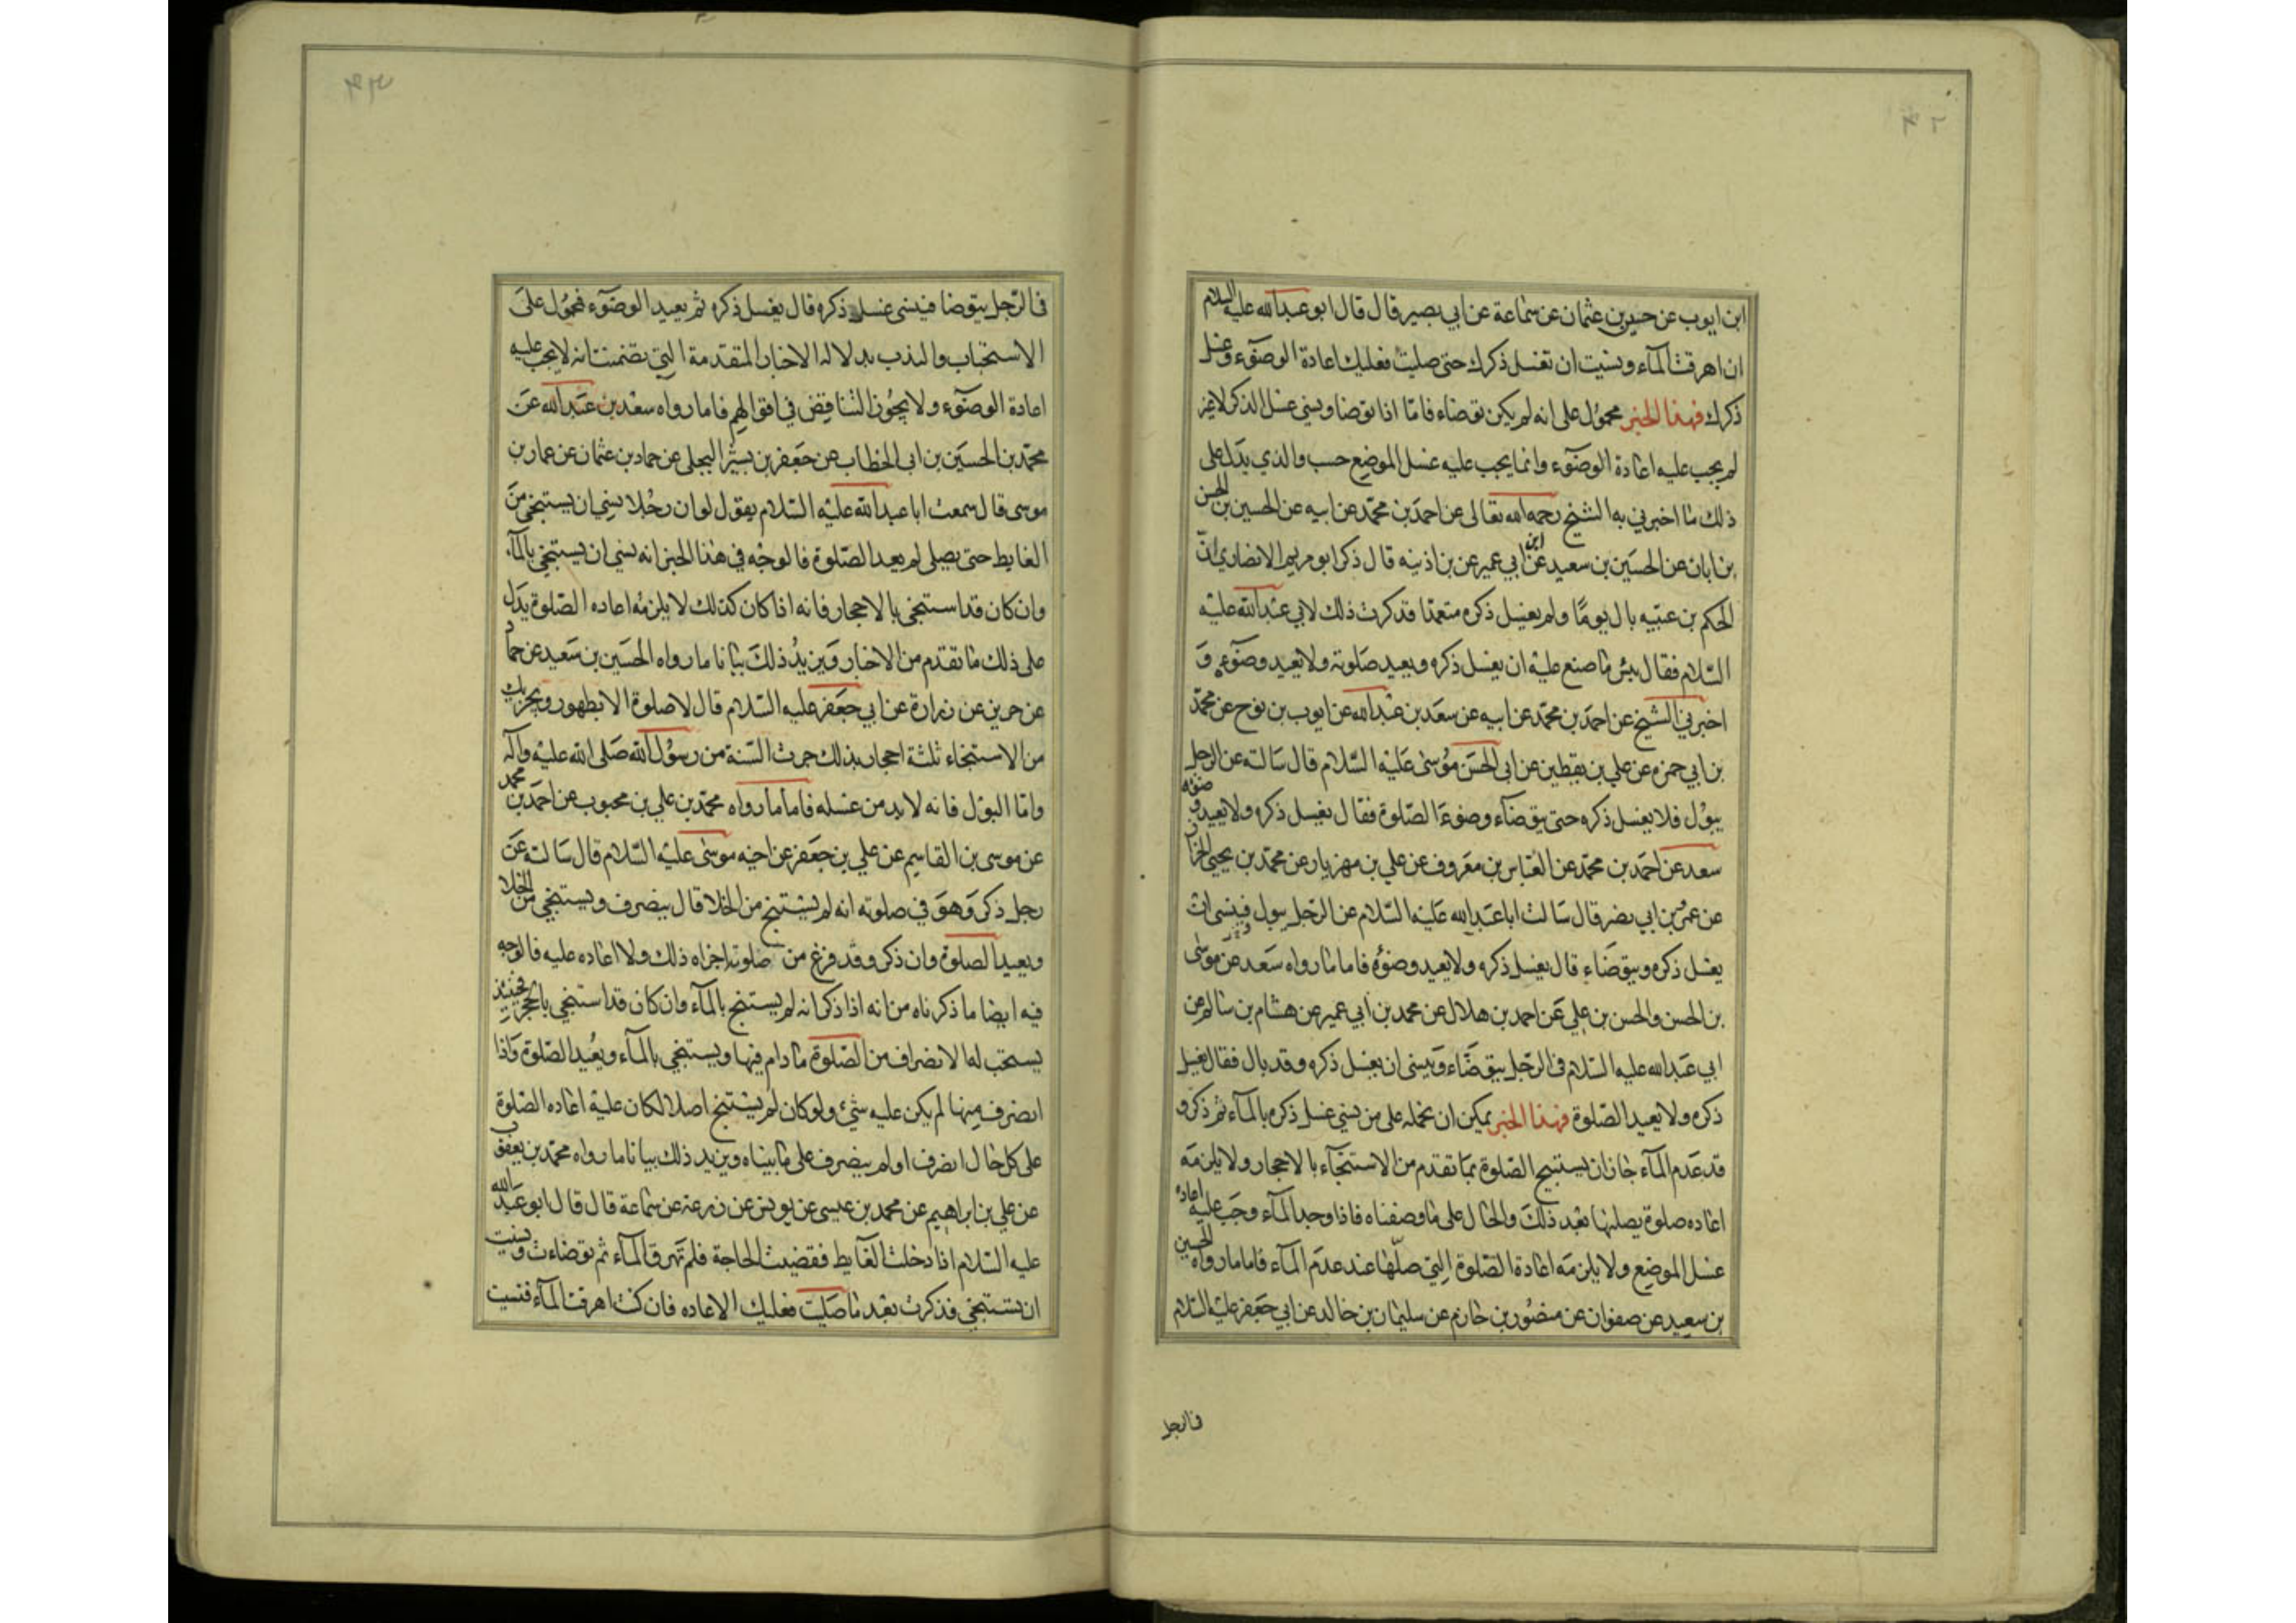 ٤٢
ابن ايوب عن حسين بن عثمان عن سماعة عن ابي بصير قال قال ابو عبدالله عليه السلام
ان اهرقت المآء ونسيت ان تغسل ذكرك حتى صليت فعليك اعادة الوضوء وغسل
ذكرك فهذا الخبر محمول على انه لم يكن توضاء فامّا اذا توضا ونسي غسل الذكر لا غير
لم يجب عليه اعادة الوضوء وانما يجب عليه غسل الموضع حسب والذي يدل على
ذلك ما اخبرني به الشيخ رحمه الله تعالى عن احمد بن محمّد عن ابيه عن الحسين بن الحسن
بن ابان عن الحسين بن سعيد عن ابن ابي عمير عن بن اذينه قال ذكر ابو مريم الانصاري انّ
الحكم بن عتيبه بال يومًا ولم يغسل ذكره متعمدا فذكرت ذلك لابي عبدالله عليه
السّلام فقال بئس ما صنع عليه ان يغسل ذكره ويعيد صلوته ولا يعيد وضوءه و
اخبرني الشيخ عن احمد بن محمّد عن ابيه عن سعد بن عبدالله عن ايوب بن نوح عن محمّد
بن ابي حمزه عن علي بن يقطين عن ابي الحسن موسى عليه السّلام قال سالته عن الرجل
يبول فلا يغسل ذكره حتى يتوضآء وضوء الصّلوة فقال يغسل ذكره ولا يعيد وضوئه
سعد عن احمد بن محمّد عن العباس بن معروف عن علي بن مهزيار عن محمّد بن يحيى الخزاز
عن عمرو بن ابي نصر قال سالت ابا عبدالله عليه السّلام عن الرّجل يبول فينسى ان
يغسل ذكره ويتوضاء قال يغسل ذكره ولا يعيد وضوئه فاما ما رواه سعد عن موسى
بن الحسن والحسن بن علي عن احمد بن هلال عن محمد بن ابي عمير عن هشام بن سالم عن
ابي عبدالله عليه السّلام في الرّجل يتوضّاء وينسى ان يغسل ذكره وقد بال فقال يغسل
ذكره ولا يعيد الصّلوة فهذا الخبر يمكن ان نحمله على من نسي غسل ذكره بالمآء ثم ذكر و
قد عدم المآء جاز ان يستبيح الصّلوة بما تقدم من الاستنجآء بالاحجار ولا يلزمه
اعاده صلوة يصليها بعد ذلك والحال على ما وصفناه فاذا وجد المآء وجب عليه اعاده
غسل الموضع ولا يلزمه اعادة الصّلوة التي صلّاها عند عدم المآء فاما ما رواه الحسين
بن سعيد عن صفوان عن منصور بن حازم عن سليمان بن خالد عن ابي جعفر عليه السّلام
في الرجل
٤٣
في الرّجل يتوضا فينسى غسل ذكره قال يغسل ذكره ثم يعيد الوضوء فمحمول على
الاستحباب والندب بدلاله الاخبار المتقدمة التي تضمنت انه لا يجب عليه
اعادة الوضوء ولا يجوز التناقض في اقوالهم فاما ما رواه سعد بن عبدالله عن
محمّد بن الحسين بن ابي الخطاب عن جعفر بن بشير البجلي عن حماد بن عثمان عن عمار بن
موسى قال سمعت ابا عبدالله عليه السّلام يقول لو ان رجلا نسي ان يستنجي من
الغايط حتى يصلي لم يعد الصّلوة فالوجه في هذا الخبر انه نسي ان يستنجي بالمآء
وان كان قد استنجى بالاحجار فانه اذا كان كذلك لا يلزمه اعاده الصّلوة يدل
على ذلك ما تقدم من الاخبار ويزيد ذلك بيانا ما رواه الحسين بن سعيد عن حماد
عن حريز عن زرارة عن ابي جعفر عليه السّلام قال لا صلوة الا بطهور ويجزيك
من الاستنجاء ثلثة احجار بذلك جرت السّنة من رسول الله صلى الله عليه وآله
وامّا البول فانه لا بد من غسله فاما ما رواه محمّد بن علي بن محبوب عن احمد بن محمد
عن موسى بن القاسم عن علي بن جعفر عن اخيه موسى عليه السّلام قال سالته عن
رجل ذكر وهو في صلوته انه لم يستنج من الخلا قال ينصرف ويستنجي من الخلا
ويعيد الصلوة وان ذكر وقد فرغ من صلوته اجزاه ذلك ولا اعاده عليه فالوجه
فيه ايضا ما ذكرناه من انه اذا ذكر انه لم يستنج بالمآء وان كان قد استنجى بالحجر فحينئذ
يستحب له الانصراف من الصّلوة ما دام فيها ويستنجي بالمآء ويعيد الصّلوة واذا
انصرف منها لم يكن عليه شيء ولو كان لم يستنج اصلا لكان عليه اعاده الصّلوة
على كل حال انصرف او لم ينصرف على ما بيناه ويزيد ذلك بيانا ما رواه محمّد بن يعقوب
عن علي بن ابراهيم عن محمد بن عيسى عن يونس عن زرعة عن سماعة قال قال ابو عبدالله
عليه السّلام اذا دخلت الغايط فقضيت الحاجة فلم تهرق المآء ثم توضاءت ونسيت
ان تستنجي فذكرت بعد ما صليت فعليك الاعاده فان كنت اهرقت المآء فنسيت